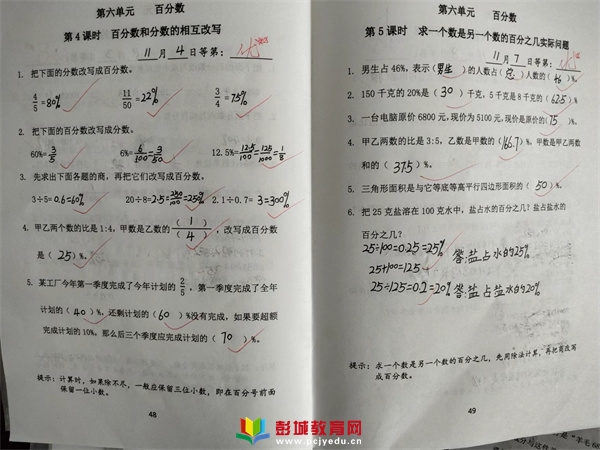 第六单元 百分数
第4课时 百分数和分数的相互改写
11月4日等第:
1. 把下面的分数改写成百分数。
4/5=80% 11/50=22% 3/4=75%
2. 把下面的百分数改写成分数。
60%=3/5 6%=6/100=3/50 12.5%=12.5/100=125/1000=1/8
3. 先求出下面各题的商，再把它们改写成百分数。
3÷5=0.6=60% 20÷8=2.5=250/100=250% 2.1÷0.7=3=300%
4. 甲乙两个数的比是1:4，甲数是乙数的(1)/(4)，改写成百分数
是(25)%。
5. 某工厂今年第一季度完成了今年计划的2/5，第一季度完成了全年
计划的(40)%，还剩计划的(60)%没有完成，如果要超额
完成计划的10%，那么后三个季度应完成计划的(70)%。
提示：计算时，如果除不尽，一般应保留三位小数，即在百分号前面
保留一位小数。
48
第六单元 百分数
第5课时 求一个数是另一个数的百分之几实际问题
11月7日等第:
1. 男生占46%，表示(男生)的人数占(总)人数的(46)%。
2. 150千克的20%是(30)千克，5千克是8千克的(62.5)%
3. 一台电脑原价6800元，现价为5100元，现价是原价的(75)%。
4. 甲乙两数的比是3:5，乙数是甲数的(166.7)%，甲数是甲乙两数
和的(37.5)%。
5. 三角形面积是与它等底等高平行四边形面积的(50)%。
6. 把25克盐溶在100克水中，盐占水的百分之几？盐占盐水的
百分之几？
25÷100=0.25=25% 答:盐占水的25%
25+100=125
25÷125=0.2=20% 答:盐占盐水的20%
提示：求一个数是另一个数的百分之几，先用除法计算，再把商改写
成百分数。
49
彭城教育网
www.pcjyedu.cn